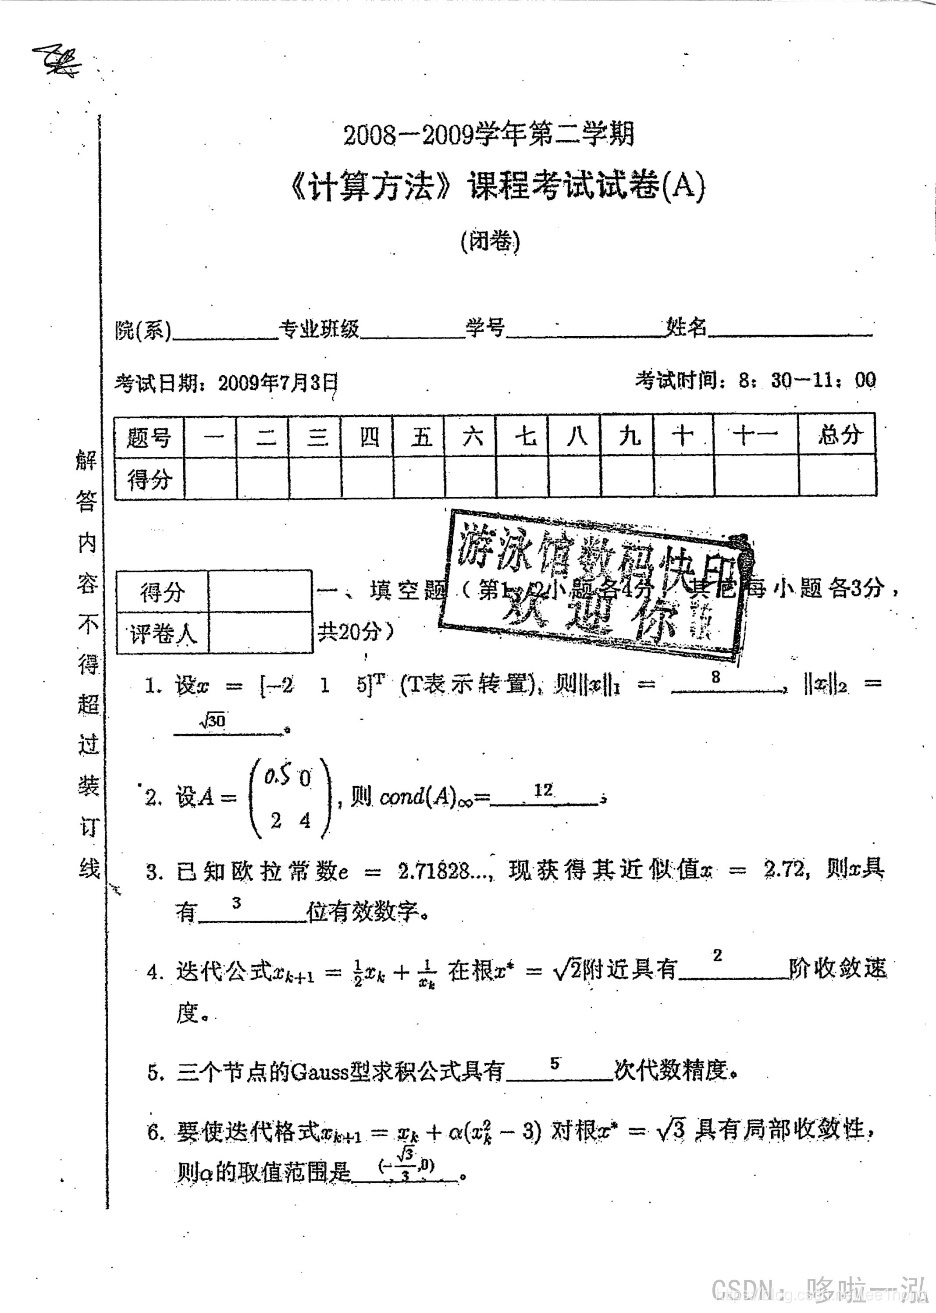 2008－2009学年第二学期
《计算方法》课程考试试卷(A)
(闭卷)
院(系)__________专业班级__________学号__________姓名__________
考试日期：2009年7月3日 考试时间：8：30－11：00
题号 一 二 三 四 五 六 七 八 九 十 十一 总分
得分
解答内容不得超过装订线
游泳馆数码快印
欢迎你
得分
评卷人
一、填空题（第1、2小题各4分，其它每小题各3分，
共20分）
1. 设x = [-2 1 5]ᵀ (T表示转置), 则||x||₁ = 8, ||x||₂ =
√30。
2. 设A = (0.5 0
2 4), 则 cond(A)∞= 12;
3. 已知欧拉常数e = 2.71828..., 现获得其近似值x = 2.72, 则x具
有 3 位有效数字。
4. 迭代公式xₖ₊₁ = ½xₖ + 1/xₖ 在根x* = √2附近具有 2 阶收敛速
度。
5. 三个节点的Gauss型求积公式具有 5 次代数精度。
6. 要使迭代格式xₖ₊₁ = xₖ + α(xₖ² − 3) 对根x* = √3 具有局部收敛性,
则α的取值范围是 (-√3/3,0)。
CSDN：哆啦一泓